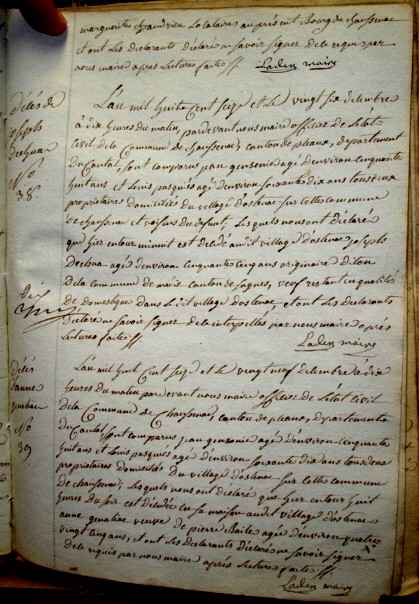 marguerites chandrien Locataires au present Bourg de chaussenac
et ont Les declarants declaré ne savoir signer de le requis par
nous maire apres Lectures faite
Laden maire
Décès de
joseph
Dechuac
N.º
38
L'an mil huit Cent seize et le vingt six decembre
à dix heures du matin, pardevant nous maire officier de L'état
civil de la Commune de chaussenac, canton de pleaux, departement
du Cantal, sont comparus jean gensonie agé d'environ cinquante
huit ans et Louis pasquès agé d'environ soixante dix ans tous deux
propriétaires domiciliés du village d'ostenac sur cette commune
de chaussenac et voisins du defunt; Lesquels nous ont déclaré
que hier entour minuit est décédé audit village d'ostenac joseph
Dechuac agé d'environ cinquante cinq ans originaire
de la commune de canton de veuf restant en qualité
de domestique dans le dit village d'ostenac, et ont Les declarants
déclaré ne savoir signer de le interpellés par nous maire apres
Lectures faites
Laden maire
Décès
d'anne
gnatiac
N.º
39
L'an mil huit Cent seize et Le vingt neuf decembre à dix
heures du matin par devant nous maire officier de L'état civil
de la Commune de Chaussenac, canton de pleaux, departement
du Cantal sont comparus jean gensonie agé d'environ cinquante
huit ans et Louis pasquès agé d'environ soixante dix ans tous deux
propriétaires domiciliés du village d'ostenac sur cette commune
de chaussenac; Lesquels nous ont déclaré que hier entour huit
heures du soir est décédée en sa maison audit village d'ostenac
anne gnatiac veuve de pierre Baile agée d'environ quatre
vingt cinq ans, et ont Les declarants déclaré ne savoir signer
de le requis par nous maire après Lecture faite
Laden maire